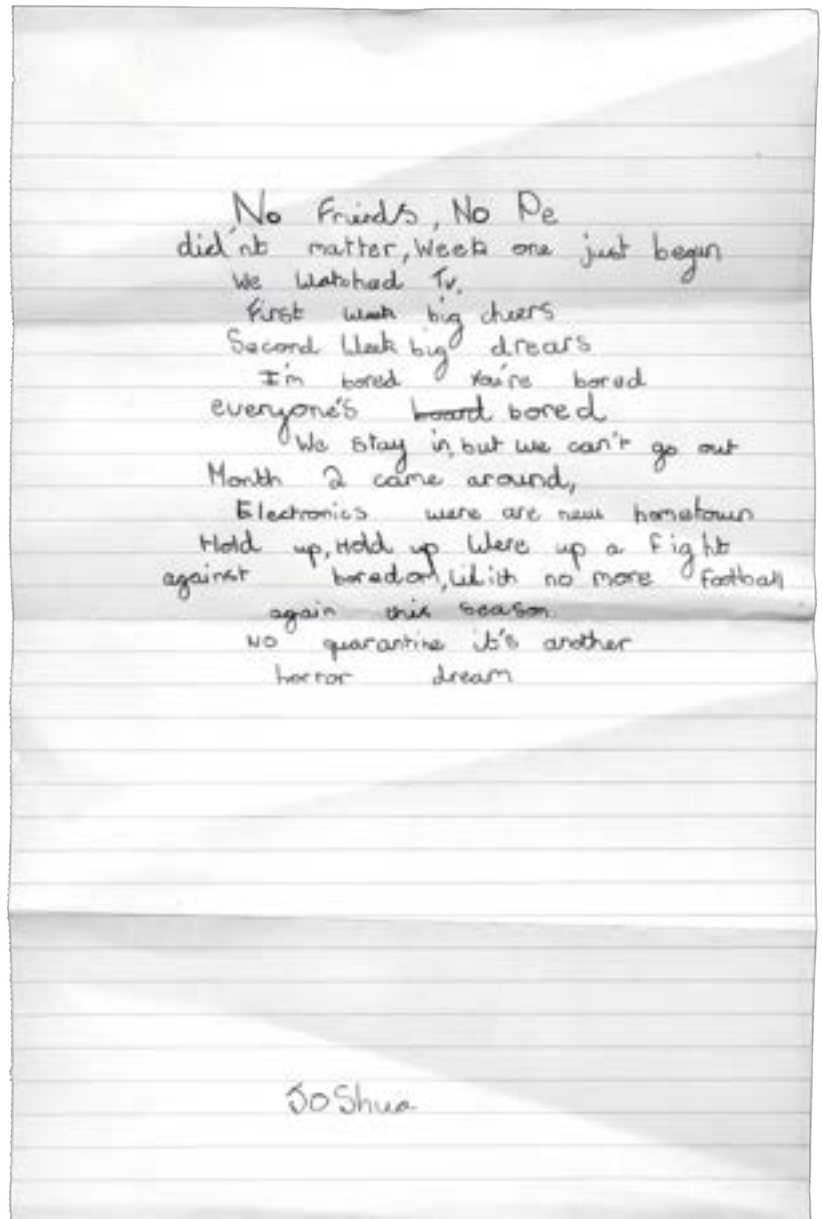 No Friends, No Pe
did'nt matter, Week one just begun
We Watched Tv.
First week big cheers
Second Week big drears
I'm bored You're bored
everyone's board bored
We stay in, but we can't go out
Month 2 came around,
Electronics were are new hometown
Hold up, Hold up Were up a Fight
against boredom, With no more Football
again this season.
NO quarantine it's another
horror dream
JoShua